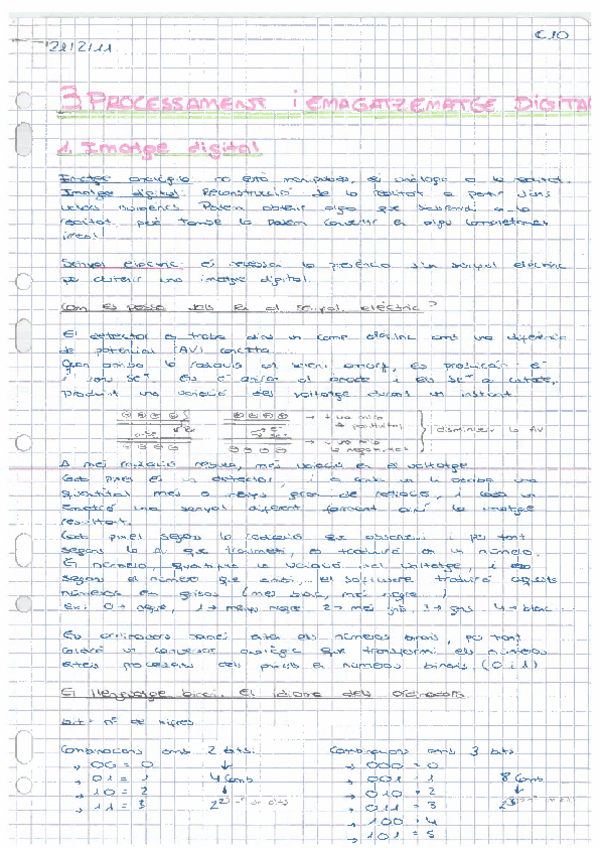 C10
21/2/11
3 PROCESSAMENT i EMAGATZEMATGE DIGITAL
1. Imatge digital
Imatge analògica no està manipulada, és anàloga a la realitat.
Imatge digital: Reconstrucció de la realitat a partir d'uns
valors numèrics. Podem obtenir algo que s'assembla a la
realitat, però també la podem convertir en algo completament
irreal!
Senyal elèctric: és necessari la presència d'un senyal elèctric
per obtenir una imatge digital.
Com es passa dels RX al senyal elèctric?
El detector es troba dins un camp elèctric amb una diferència
de potencial (AV) concreta.
Quan arriba la radiació
produint una variació del voltatge durant un instant.
→ + va més
→ - va més
disminueix la AV
A més radiació rebuda, més variació en el voltatge
Cada píxel és un detector, i a cada un li arriba una
quantitat més o menys gran de radiació, i cada un
emetrà una senyal diferent formant així la imatge
resultant.
Cada píxel segons la radiació que absorbeix i per tant
segons la AV que transmeti, es traduirà en un número.
El número quantifica la variació del voltatge, i
segons el número que arribi, el software traduirà aquests
números en grisos (més blanc, més negre)
Ex: 0→ negre, 1→ menys negre 2→ més gris 3→ gris 4→ blanc
Els ordinadors només
caldrà un conversor analògic que transformi els números
dels píxels en números binaris (0 i 1)
El llenguatge binari. El idioma dels ordinadors
bit = nº de xifres
Combinacions amb 2 bits:
→ 00 = 0
→ 01 = 1
→ 10 = 2
→ 11 = 3
4 Comb
2²
Combinacions amb 3 bits
→ 000 = 0
→ 001 = 1
→ 010 = 2
→ 011 = 3
→ 100 = 4
→ 101 = 5
8 Comb
2³